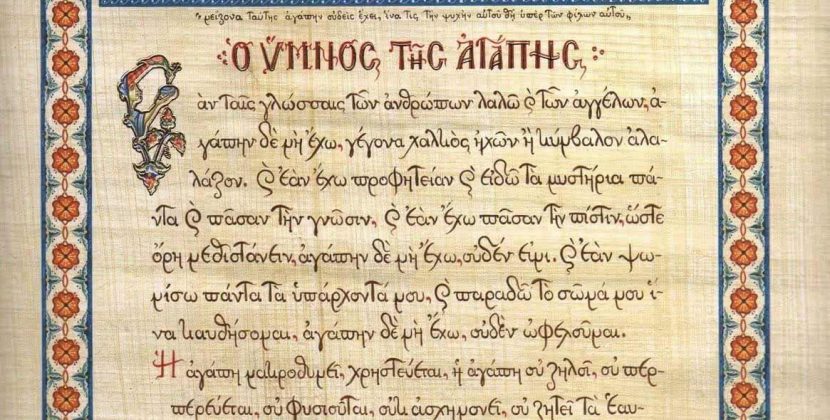 μείζονα ταύτης ἀγάπην οὐδεὶς ἔχει, ἵνα τις τὴν ψυχὴν αὐτοῦ θῇ ὑπὲρ τῶν φίλων αὐτοῦ
Ὁ ὝΜΝΟΣ ΤΗ͂Σ ἈΓΆΠΗΣ
Ἐὰν ταῖς γλώσσαις τῶν ἀνθρώπων λαλῶ ϗ τῶν ἀγγέλων, ἀ-
γάπην δὲ μὴ ἔχω, γέγονα χαλκὸς ἠχῶν ἢ κύμβαλον ἀλα-
λάζον. ϗ ἐὰν ἔχω προφητείαν ϗ εἰδῶ τὰ μυστήρια πά-
ντα ϗ πᾶσαν τὴν γνῶσιν, ϗ ἐὰν ἔχω πᾶσαν τὴν πίστιν, ὥστε
ὄρη μεθιστάνειν, ἀγάπην δὲ μὴ ἔχω, οὐδέν εἰμι. ϗ ἐὰν ψω-
μίσω πάντα τὰ ὑπάρχοντά μου, ϗ παραδῶ τὸ σῶμά μου ἵ-
να καυθήσομαι, ἀγάπην δὲ μὴ ἔχω, οὐδὲν ὠφελοῦμαι.
Ἡ ἀγάπη μακροθυμεῖ, χρηστεύεται, ἡ ἀγάπη οὐ ζηλοῖ, οὐ περ-
περεύεται, οὐ φυσιοῦται, οὐκ ἀσχημονεῖ, οὐ ζητεῖ τὰ ἑαυ-